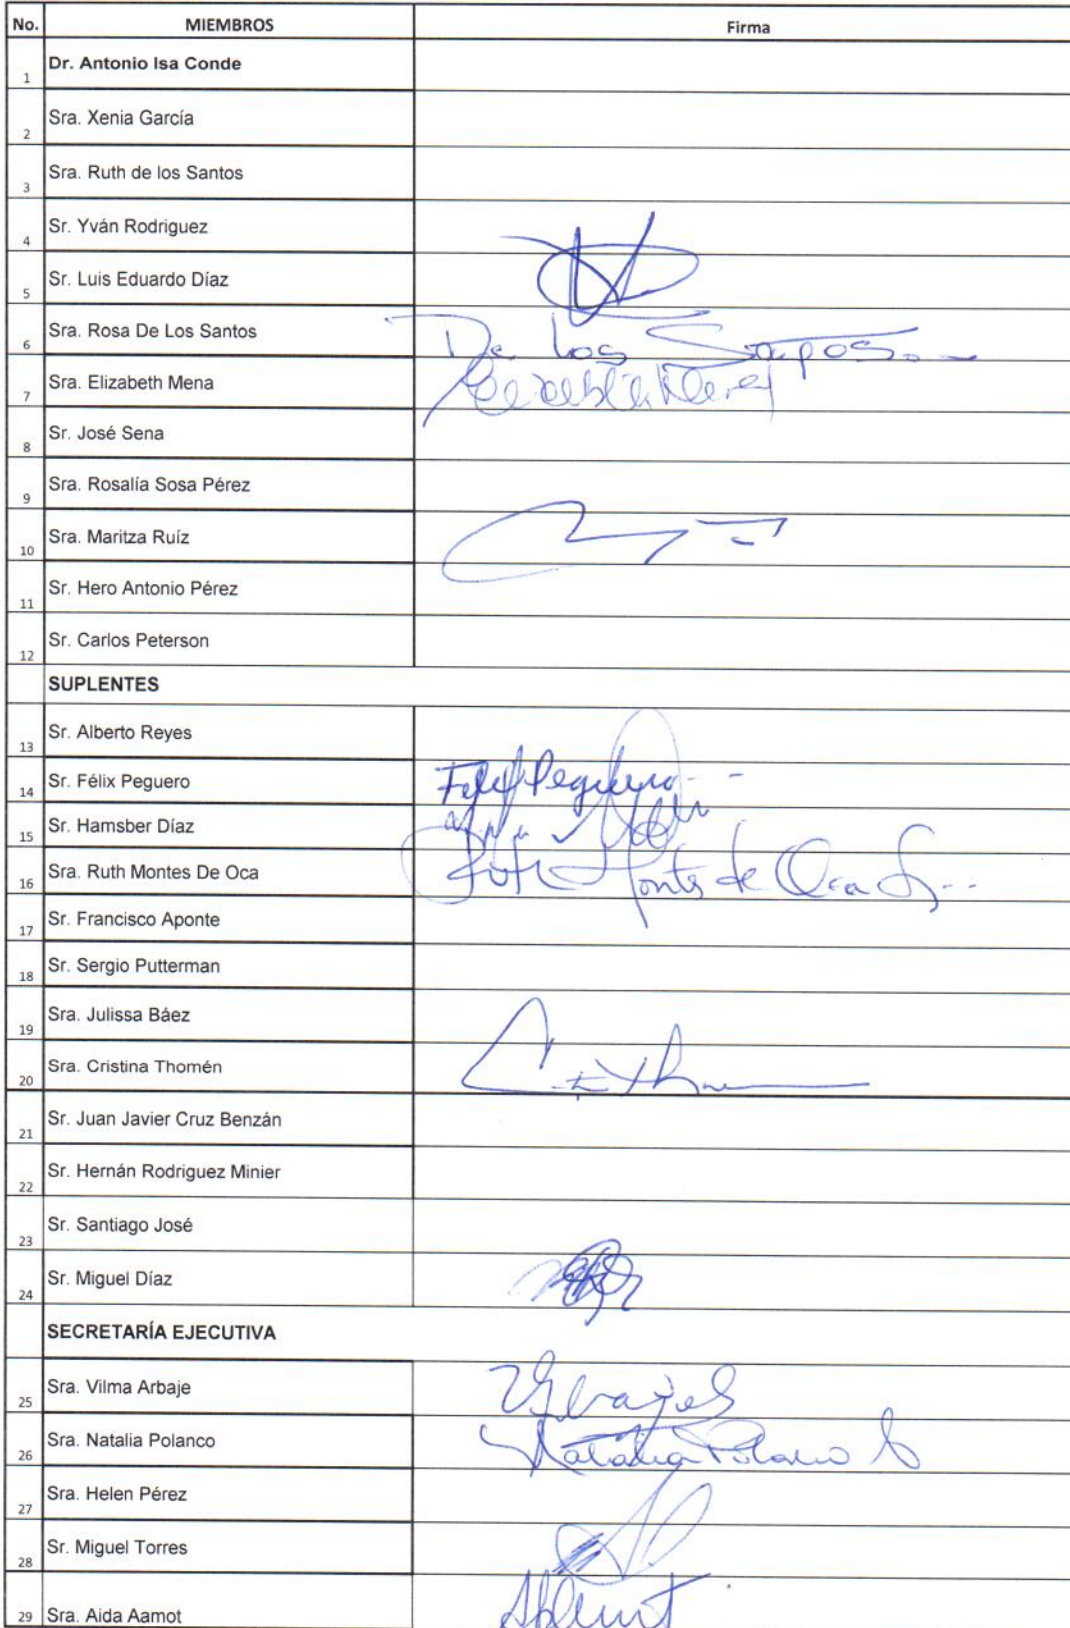 No. MIEMBROS Firma
1 Dr. Antonio Isa Conde
2 Sra. Xenia García
3 Sra. Ruth de los Santos
4 Sr. Yván Rodriguez
5 Sr. Luis Eduardo Díaz
6 Sra. Rosa De Los Santos De Los Santos
7 Sra. Elizabeth Mena
8 Sr. José Sena
9 Sra. Rosalía Sosa Pérez
10 Sra. Maritza Ruíz
11 Sr. Hero Antonio Pérez
12 Sr. Carlos Peterson
SUPLENTES
13 Sr. Alberto Reyes
14 Sr. Félix Peguero Felix Peguero
15 Sr. Hamsber Díaz
16 Sra. Ruth Montes De Oca Ruth Montes de Oca
17 Sr. Francisco Aponte
18 Sr. Sergio Putterman
19 Sra. Julissa Báez
20 Sra. Cristina Thomén
21 Sr. Juan Javier Cruz Benzán
22 Sr. Hernán Rodriguez Minier
23 Sr. Santiago José
24 Sr. Miguel Díaz
SECRETARÍA EJECUTIVA
25 Sra. Vilma Arbaje
26 Sra. Natalia Polanco Natalia Polanco
27 Sra. Helen Pérez
28 Sr. Miguel Torres
29 Sra. Aida Aamot